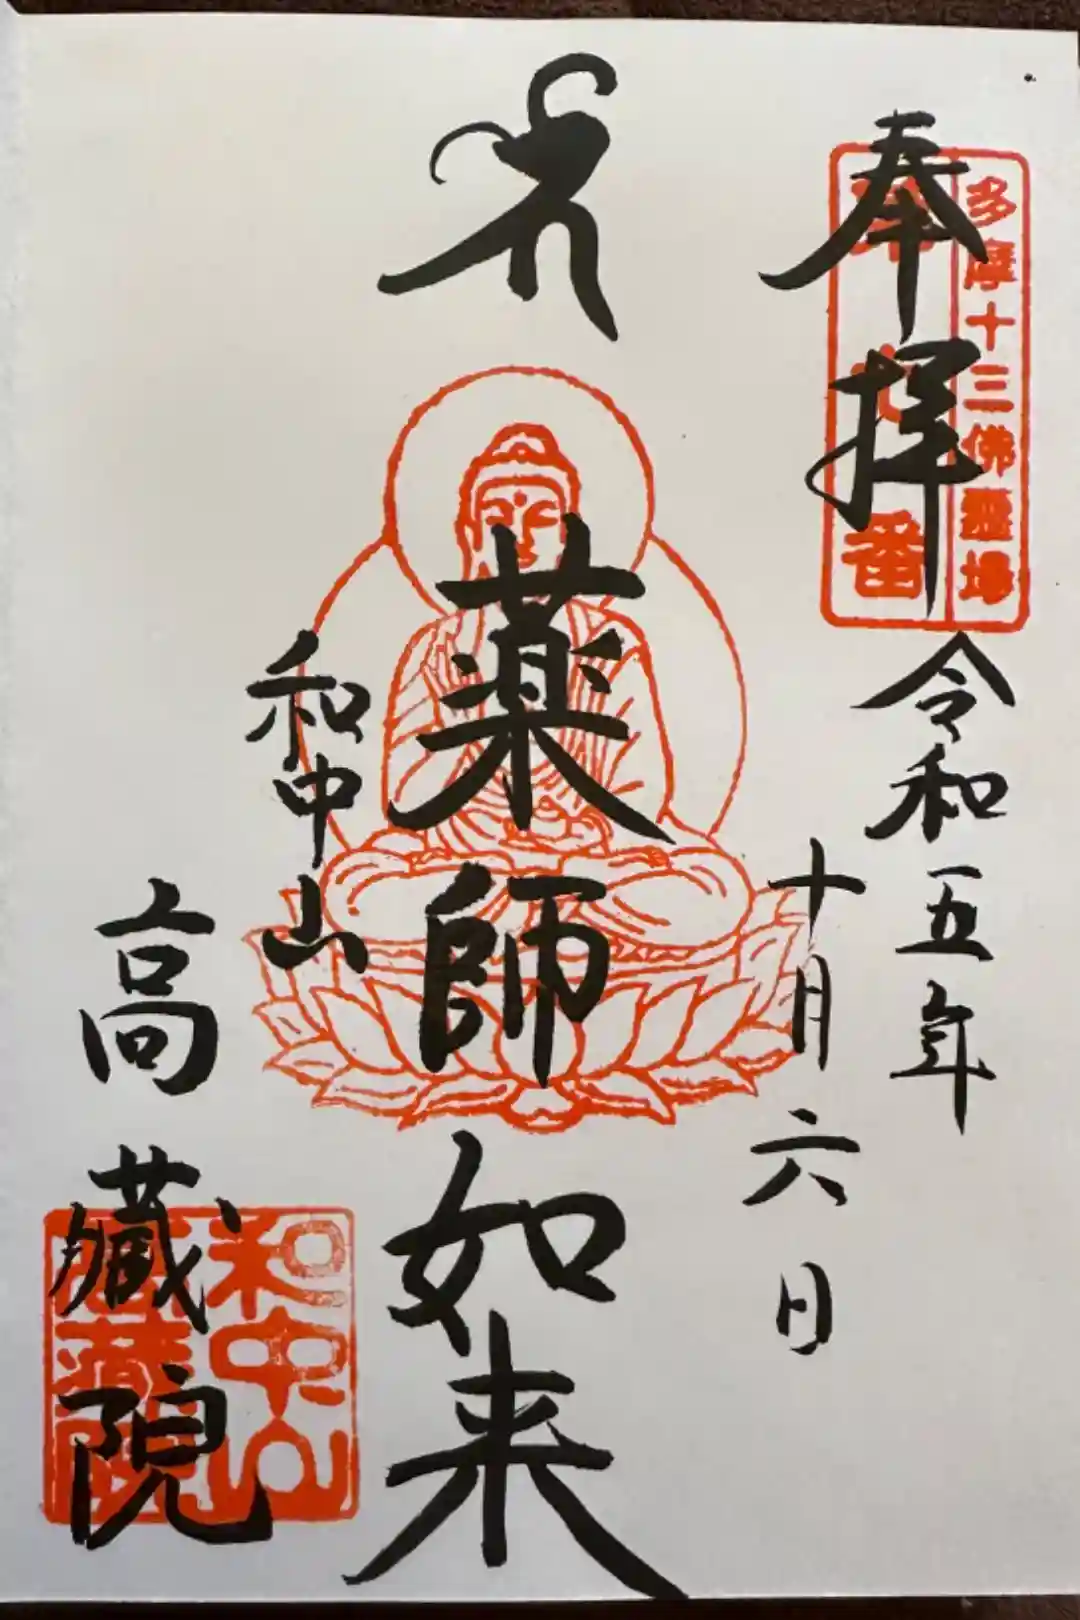 奉拝
多摩十三佛霊場
番
令和五年
十月六日
薬師如来
和中山
高蔵院
和中山
高蔵院